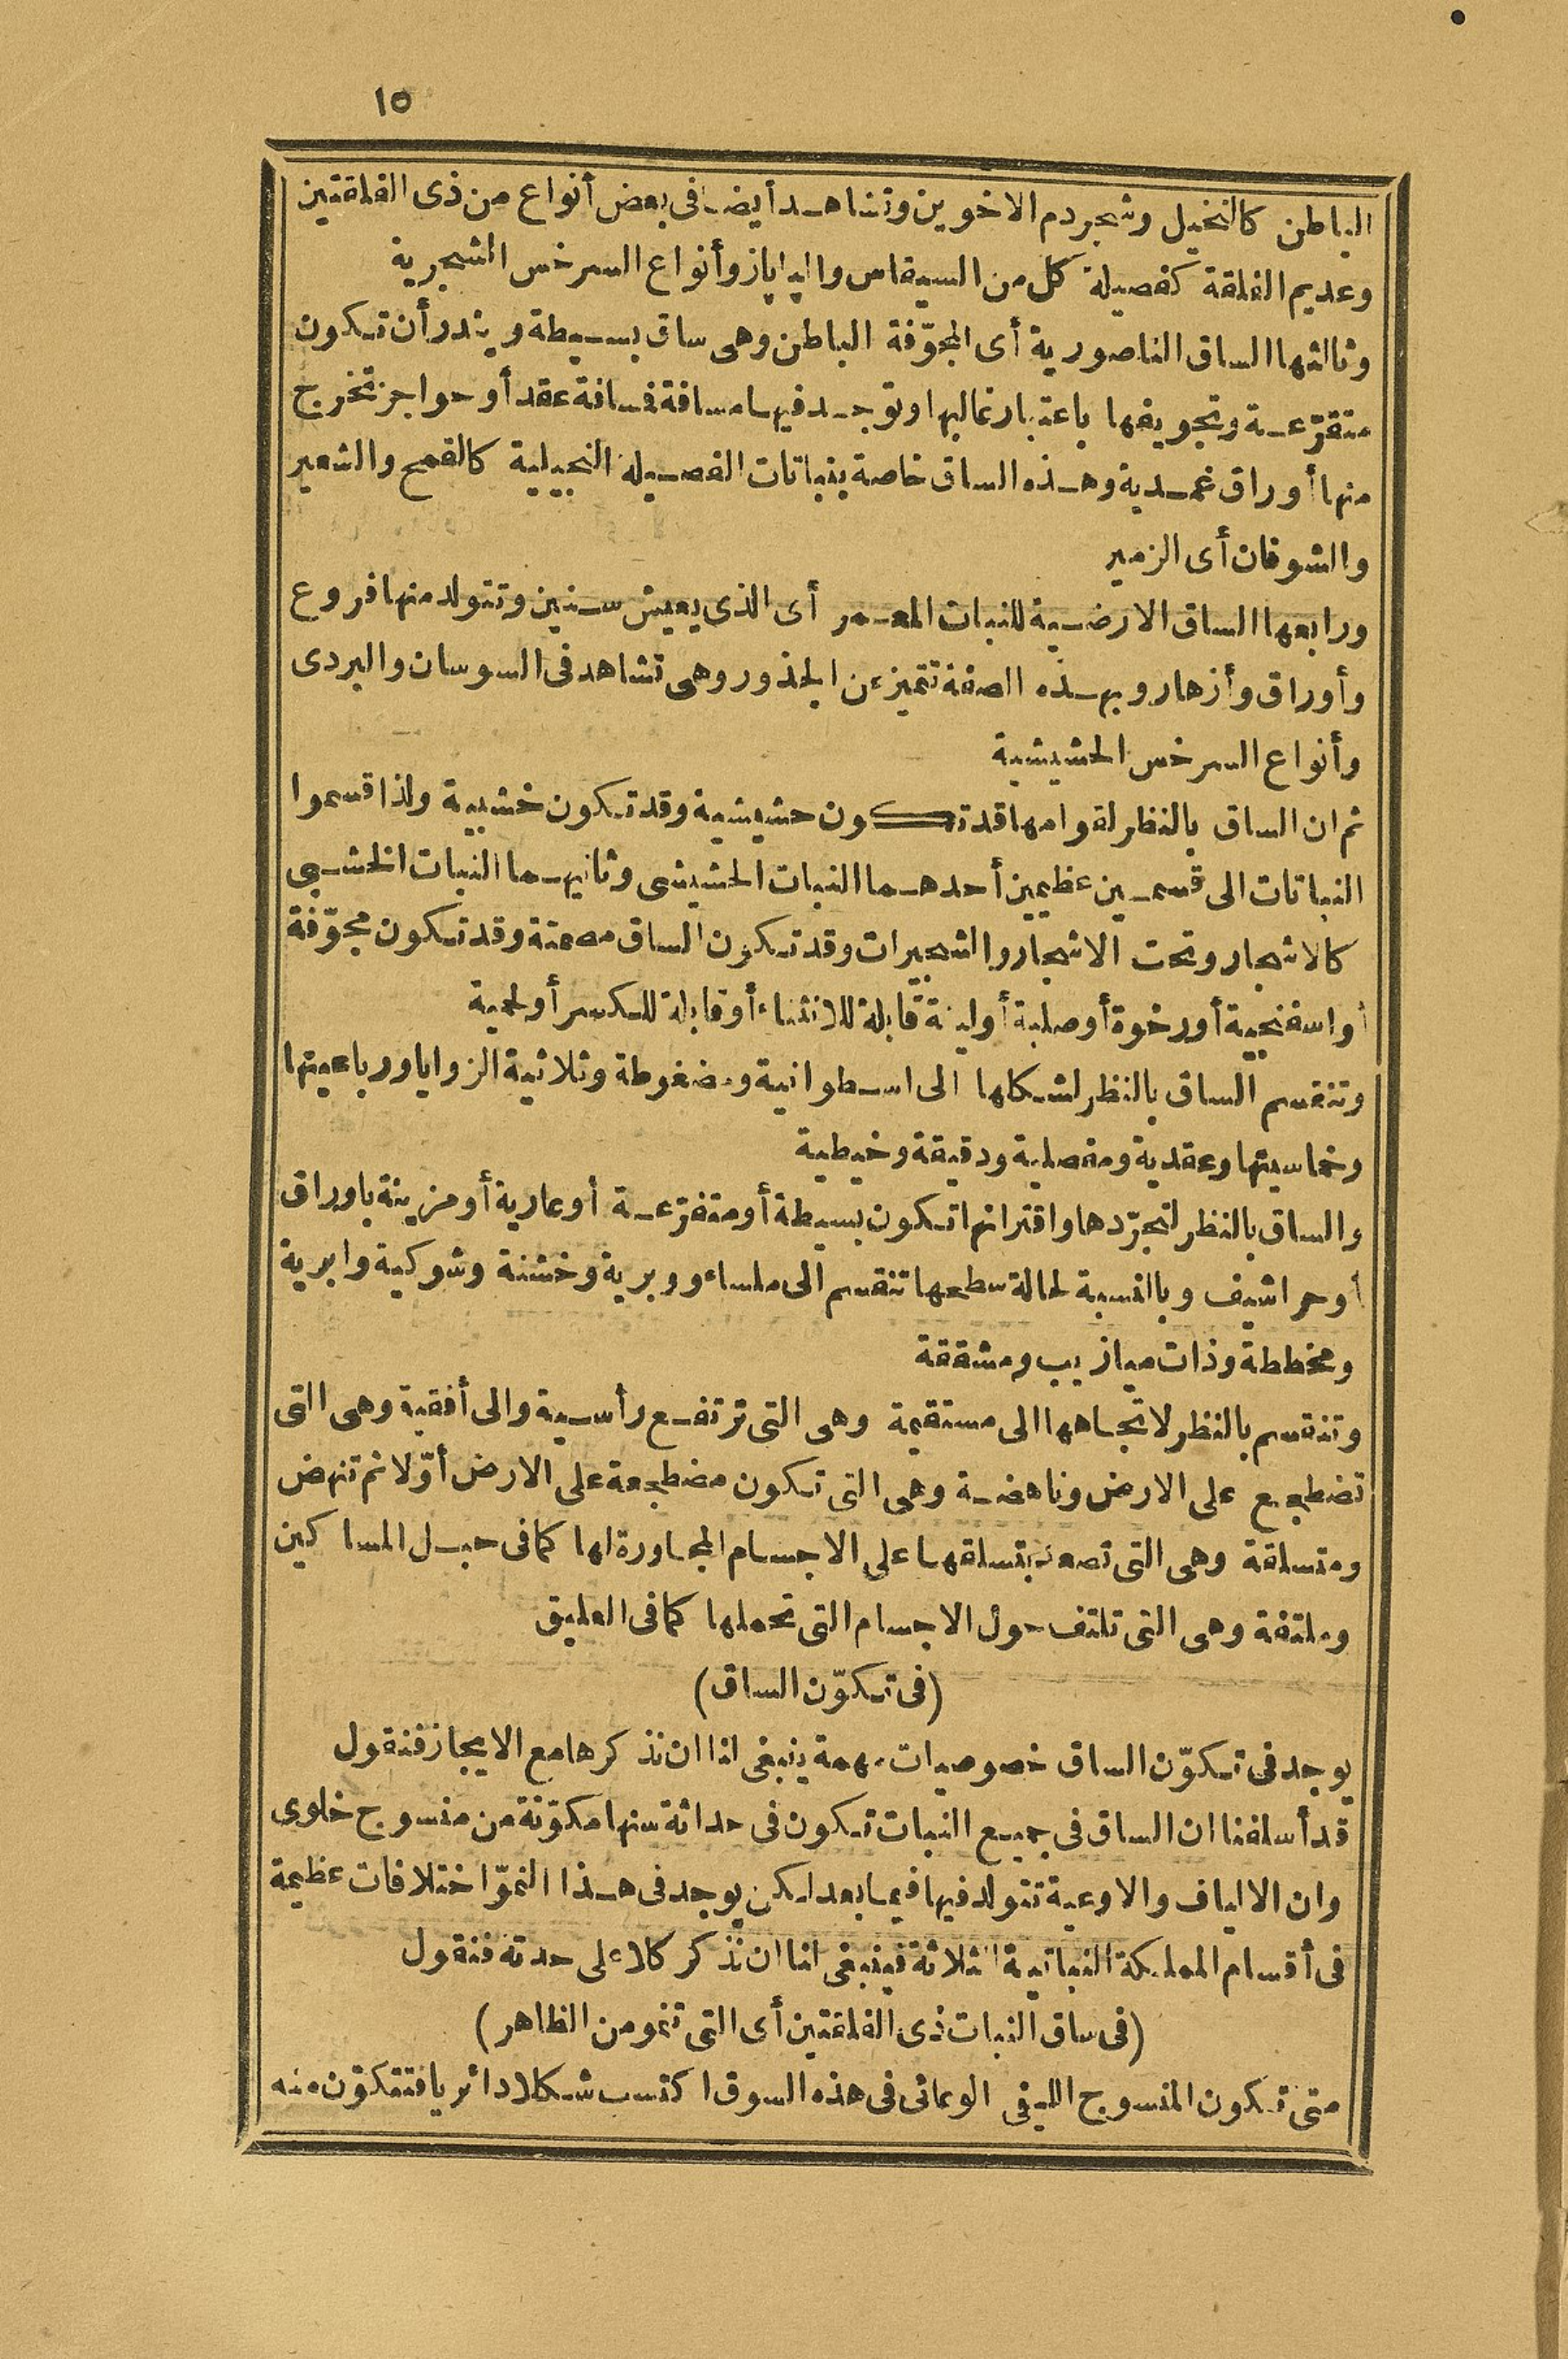 ١٥
الباطن كالنخيل وشجر دم الاخوين وتشاهد أيضا فى بعض أنواع من ذى الفلقتين
وعديم الفلقة كفصيلة كل من السيقاس والپاپاز وأنواع السرخس الشجرية
وثالثها الساق الناصورية أى المجوّفة الباطن وهى ساق بسيطة ويندر أن تكون
متفرّعة وتجويفها باعتبار غالبها وتوجد فيها مسافة فسافة عقد أو حواجز تخرج
منها أوراق غمدية وهذه الساق خاصة بنباتات الفصيلة النجيلية كالقمح والشعير
والشوفان أى الزمير
ورابعها الساق الارضية للنبات المعمر أى الذى يعيش سنين وتتولد منها فروع
وأوراق وأزهار وبهذه الصفة تتميز عن الجذور وهى تشاهد فى السوسان والبردى
وأنواع السرخس الحشيشية
ثم ان الساق بالنظر لقوامها قد تكون حشيشية وقد تكون خشبية ولذا قسموا
النباتات الى قسمين عظيمين أحدهما النبات الحشيشى وثانيهما النبات الخشبى
كالاشجار وتحت الاشجار والشجيرات وقد تكون الساق مصمتة وقد تكون مجوّفة
أو اسفنجية أو رخوة أو صلبة أو لينة قابلة للانثناء أو قابلة للكسر أو لحمية
وتنقسم الساق بالنظر لشكلها الى اسطوانية ومضغوطة وثلاثية الزوايا ورباعيتها
وخماسيتها وعقدية ومفصلية ودقيقة وخيطية
والساق بالنظر لتجرّدها واقترانها تكون بسيطة أو متفرّعة أو عارية أو مزينة باوراق
أو حراشيف وبالنسبة لحالة سطحها تنقسم الى ملساء ووبرية وخشنة وشوكية وابرية
ومخططة وذات ميازيب ومشققة
وتنقسم بالنظر لاتجاهها الى مستقيمة وهى التى ترتفع رأسية والى أفقية وهى التى
تضطجع على الارض وناهضة وهى التى تكون مضطجعة على الارض أوّلا ثم تنهض
ومتسلقة وهى التى تصعد بتسلقها على الاجسام المجاورة لها كما فى حبل المساكين
وملتفة وهى التى تلتف حول الاجسام التى تحملها كما فى العليق
(فى تكوّن الساق)
يوجد فى تكوّن الساق خصوصيات مهمة ينبغى لنا ان نذكرها مع الايجاز فنقول
قد أسلفنا ان الساق فى جميع النبات تكون فى حداثة سنها مكوّنة من منسوج خلوى
وان الالياف والاوعية تتولد فيها فيما بعد لكن يوجد فى هذا النموّ اختلافات عظيمة
فى أقسام المملكة النباتية الثلاثة فينبغى لنا ان نذكر كلا على حدته فنقول
(فى ساق النبات ذى الفلقتين أى التى تنمو من الظاهر)
متى تكون المنسوج الليفى الوعائى فى هذه السوق اكتسب شكلا دائريا فتتكوّن منه